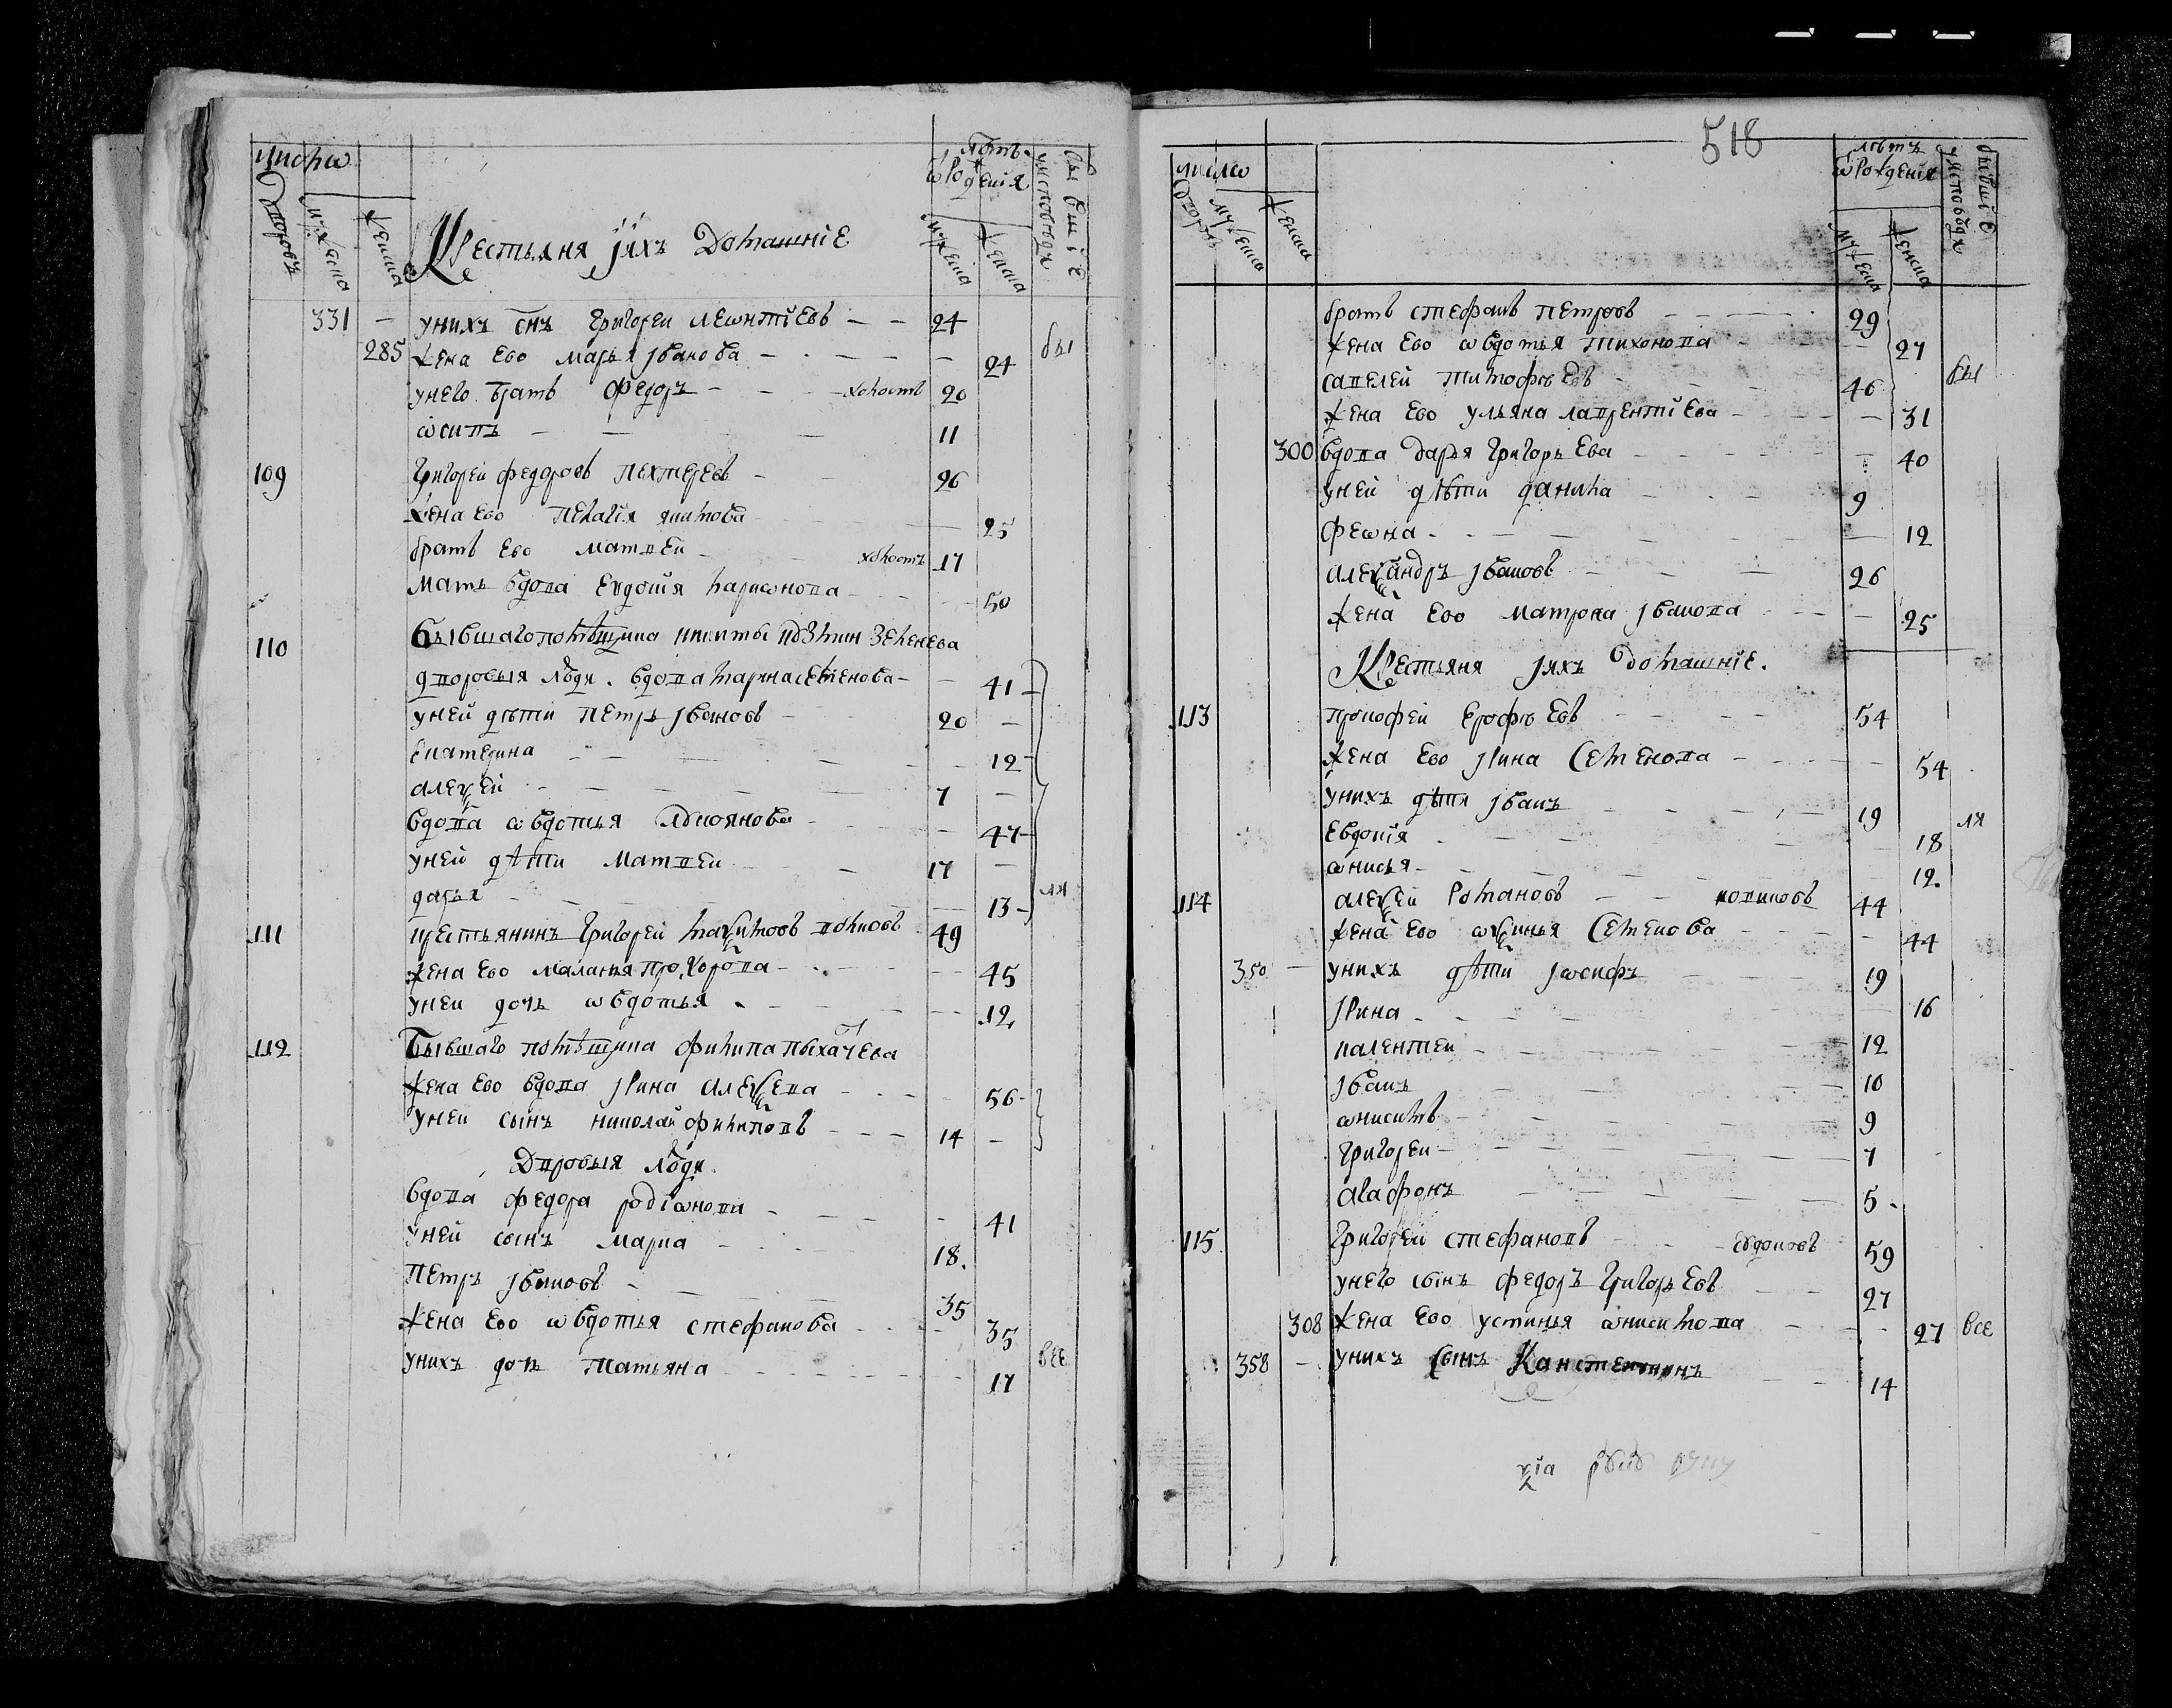 число
лѣтъ
ѿ рождения
бывшiе
у исповѣди
дворовъ
мужеска
женска
мужеска
женска
Крестьяня ј ихъ домашнiе
331 — у нихъ снъ Григореи Леѡнтiевъ — — 24
285 жена ево Марья Јванова — 24 бы
у него братъ Федоръ — холостъ 20
Ѡсипъ — 11
109 Григореи Федоровъ Пехтеревъ — 26
жена ево Пелагiя Никитова — 25
братъ ево Матвеи — холостъ 17
мать вдова Евдокiя Лариѡнова — 50
110 Бывшаго помѣщика Никиты Зеленева
дворовыя люди. вдова Марина Семенова — 41
у ней дѣти Петръ Јвановъ — 20 —
Екатерина — 12
Алеѯей — 7 —
вдова Ѡвдотья — 47
у ней дѣти Матвеи — 17 —
Дарья — 13 ли
111 крестьянинъ Григореи Маѯимовъ Волковъ 49
жена ево Маланья Прохорова — 45
у неи дочь Ѡвдотья — 12
112 Бывшаго помѣщика Филипа Пыхачева
жена ево вдова Јрина Алеѯева — 56
у неи сынъ Николаи Филиповъ — 14 —
Дворовыя люди
вдова Федора Родiѡнова — 41
у ней сынъ Марка — 18.
Петръ Јвановъ — 35
жена ево Ѡвдотья Стефанова — 35
у нихъ дочь Татьяна — 17 все
518
число
лѣтъ
ѿ рождения
бывшiе
у исповѣди
дворовъ
мужеска
женска
мужеска
женска
братъ Стефанъ Петровъ — 29
жена ево Ѡвдотья Тихонова — 27
Савелей Тимофѣевъ — 46 бы
жена ево Ульяна Лаврентiева — 31
300 вдова Дарья Григорьева — 40
у ней дѣти Данила — 9
Феѡна — 12
Алеѯандръ Јвановъ — 26
жена ево Матрона Јванова — 25
Крестьяня ј ихъ домашнiе.
113 Прокофей Ерофѣевъ — 54
жена ево Јрина Семенова — 54
у нихъ дѣти Јванъ — 19 ли
Евдокiя — 18
Ѡнисья — 12.
114 Алеѯеи Романовъ — Новиковъ 44
жена ево Ѡѯинья Семенова — 44
350 — у нихъ дѣти Јѡсифъ — 19
Јрина — 16
Калентеи — 12
Јванъ — 10
Ѡнисимъ — 9
Григореи — 7
Агафонъ — 5
115 Григореи Стефановъ — Евдоковъ 59
у него сынъ Федоръ Григорьевъ — 27
308 жена ево Устинья Ѡнисимова — 27 все
358 — у нихъ сынъ Канстентинъ — 14